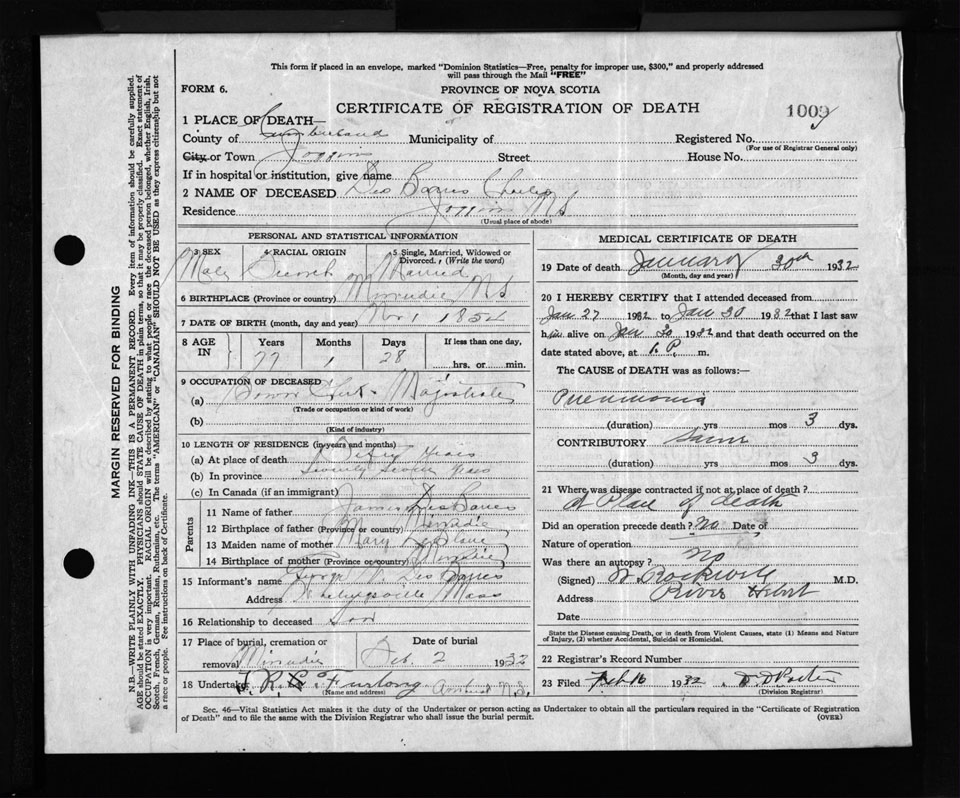 This form if placed in an envelope, marked "Dominion Statistics—Free, penalty for improper use, $300," and properly addressed
will pass through the Mail "FREE"
FORM 6.
PROVINCE OF NOVA SCOTIA
CERTIFICATE OF REGISTRATION OF DEATH
1009
1 PLACE OF DEATH—
County of Cumberland Municipality of Registered No.
(For use of Registrar General only)
City or Town Joggins Street House No.
If in hospital or institution, give name
2 NAME OF DECEASED Des Barres Charles
Residence Joggins N S
(Usual place of abode)
PERSONAL AND STATISTICAL INFORMATION
3 SEX 4 RACIAL ORIGIN 5 Single, Married, Widowed or Divorced. (Write the word)
Male French Married
6 BIRTHPLACE (Province or country) Minudie N S
7 DATE OF BIRTH (month, day and year) Nov 1 1854
8 AGE IN Years Months Days If less than one day,
77 1 28 hrs. or min.
9 OCCUPATION OF DECEASED
(a) Town Clerk Magistrate
(Trade or occupation or kind of work)
(b)
(Kind of industry)
10 LENGTH OF RESIDENCE (in years and months)
(a) At place of death Fifty Years
(b) In province Seventy Seven Years
(c) In Canada (if an immigrant)
Parents
11 Name of father James Des Barres
12 Birthplace of father (Province or country) Minudie
13 Maiden name of mother Mary
14 Birthplace of mother (Province or country) Minudie
15 Informant's name George Des Barres
Address Mass
16 Relationship to deceased Son
17 Place of burial, cremation or removal Minudie
Date of burial Feb. 2 1932
18 Undertaker J. R. Furlong Amherst N.S.
(Name and address)
MEDICAL CERTIFICATE OF DEATH
19 Date of death January 30th 1932
(Month, day and year)
20 I HEREBY CERTIFY that I attended deceased from
Jan 27 1932 to Jan 30 1932 that I last saw
him alive on Jan 30 1932 and that death occurred on the
date stated above, at 1. P. m.
The CAUSE of DEATH was as follows:—
Pneumonia
(duration) yrs mos 3 dys.
CONTRIBUTORY Same
(duration) yrs mos 3 dys.
21 Where was disease contracted if not at place of death?
at Place of death
Did an operation precede death? No Date of
Nature of operation
Was there an autopsy? No
(Signed) W. Rockwell M.D.
Address River Hebert
Date
State the Disease causing Death, or in death from Violent Causes, state (1) Means and Nature
of Injury, (2) whether Accidental, Suicidal or Homicidal.
22 Registrar's Record Number
23 Filed Feb 16 1932
(Division Registrar)
Sec. 46—Vital Statistics Act makes it the duty of the Undertaker or person acting as Undertaker to obtain all the particulars required in the "Certificate of Registration
of Death" and to file the same with the Division Registrar who shall issue the burial permit.
(OVER)
MARGIN RESERVED FOR BINDING
N.B.—WRITE PLAINLY WITH UNFADING INK—THIS IS A PERMANENT RECORD. Every item of information should be carefully supplied.
AGE should be stated EXACTLY. PHYSICIANS should STATE CAUSE OF DEATH in plain terms, so that it may be properly classified. Exact statement of
OCCUPATION is very important. RACIAL ORIGIN will be described by stating to what people or race the deceased person belonged, whether English, Irish,
Scotch, French, German, Russian, Ruthenian, etc. The terms "AMERICAN" or "CANADIAN" SHOULD NOT BE USED as they express citizenship but not
a race or people. See instructions on back of Certificate.